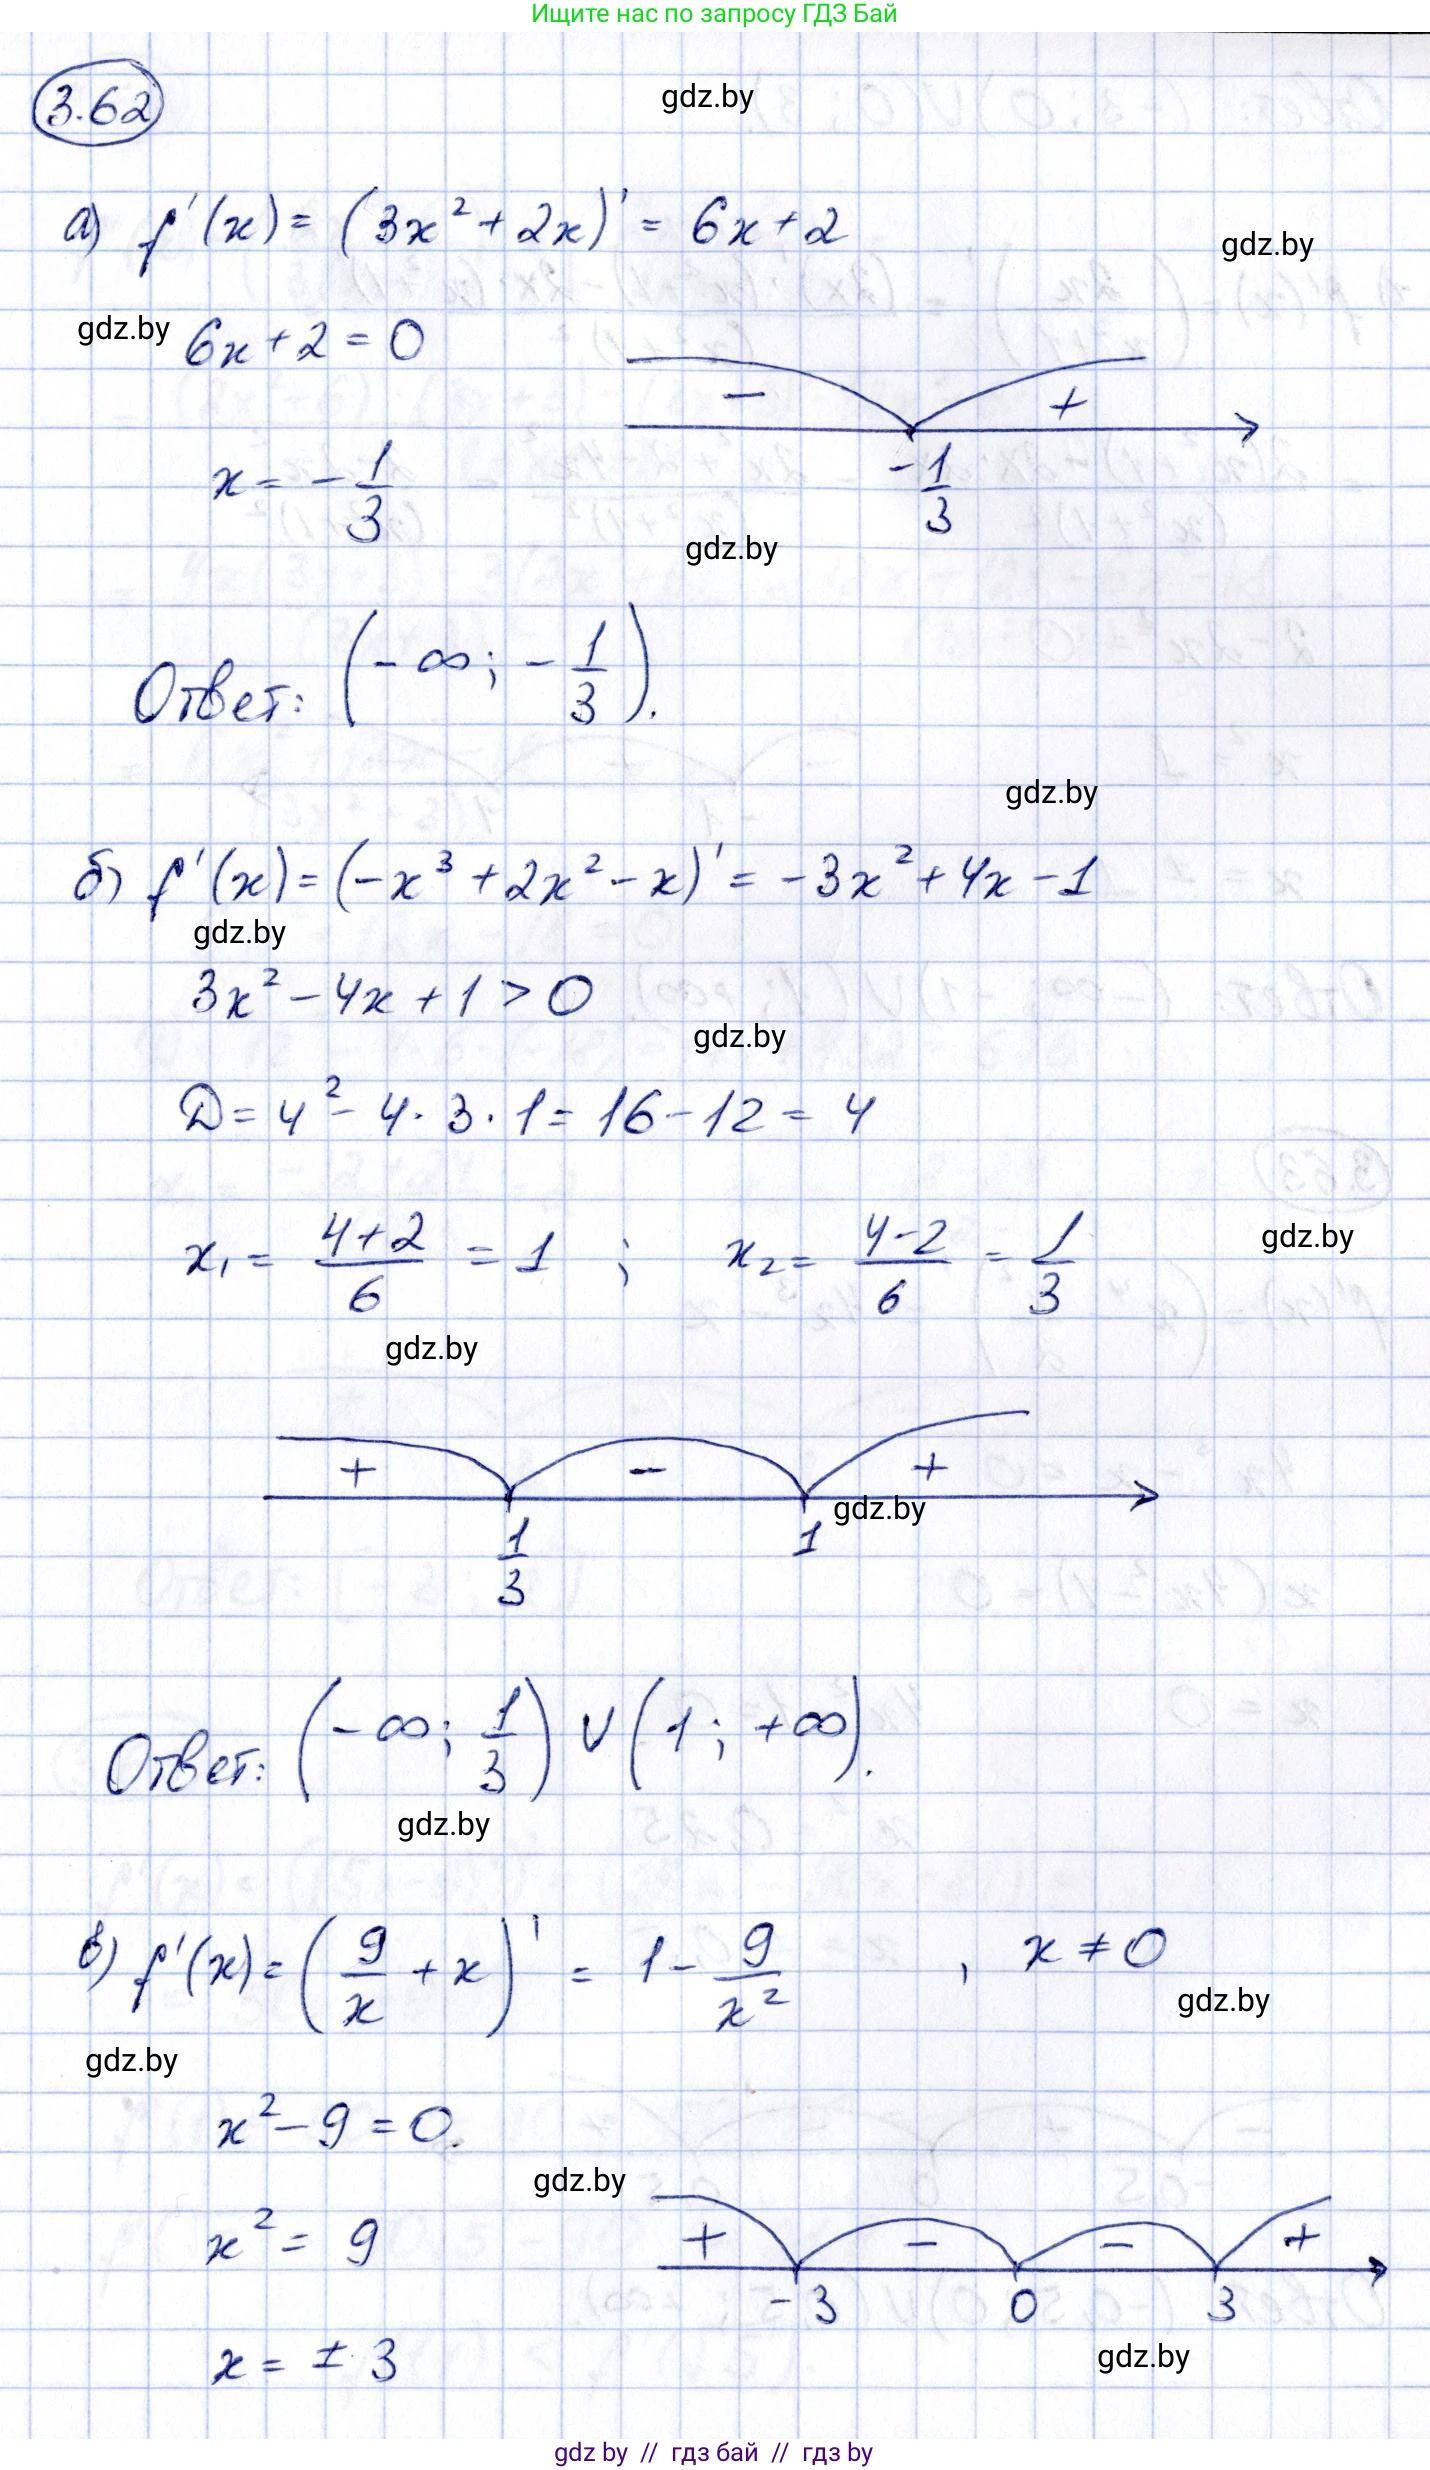 Ищите нас по запросу ГДЗ Бай
3.62
gdz.by
а) f'(x) = (3x² + 2x)' = 6x + 2
gdz.by
gdz.by
6x + 2 = 0
- +
x = -1/3
-1/3
gdz.by
Ответ: (-∞; -1/3).
gdz.by
б) f'(x) = (-x³ + 2x² - x)' = -3x² + 4x - 1
gdz.by
3x² - 4x + 1 > 0
gdz.by
D = 4² - 4 · 3 · 1 = 16 - 12 = 4
x₁ = (4+2)/6 = 1 ; x₂ = (4-2)/6 = 1/3
gdz.by
gdz.by
+ - +
gdz.by
1/3 1
Ответ: (-∞; 1/3) ∪ (1; +∞).
gdz.by
в) f'(x) = (9/x + x)' = 1 - 9/x² , x ≠ 0
gdz.by
gdz.by
x² - 9 = 0.
gdz.by
x² = 9
+ - - +
-3 0 3
x = ± 3
gdz.by
gdz by // гдз бай // гдз by